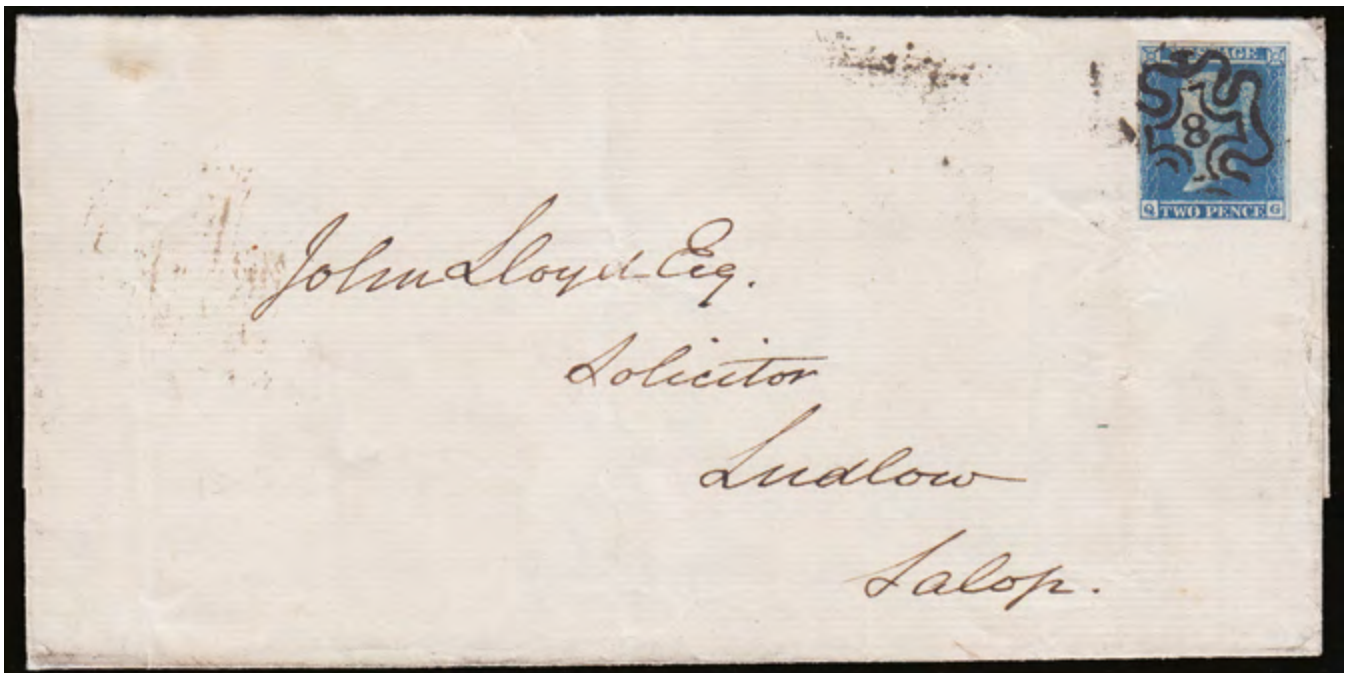 POSTAGE
8
Q TWO PENCE G
John Lloyd Esq.
Solicitor
Ludlow
Salop.